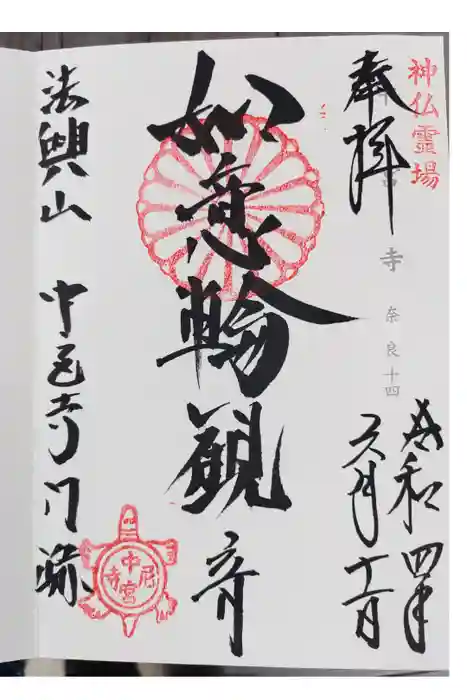 神仏霊場
奉拝
寺 奈良十四
令和四年
六月
如意輪觀音
法興山 中宮寺門跡
中宮尼寺